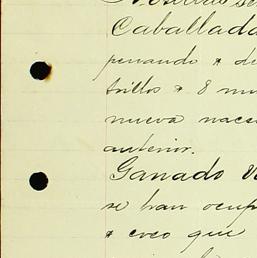 Caballada
penando & de
trillos & 8 mu
nueva nac
anterior.
Ganado V
se han ocup
& creo que